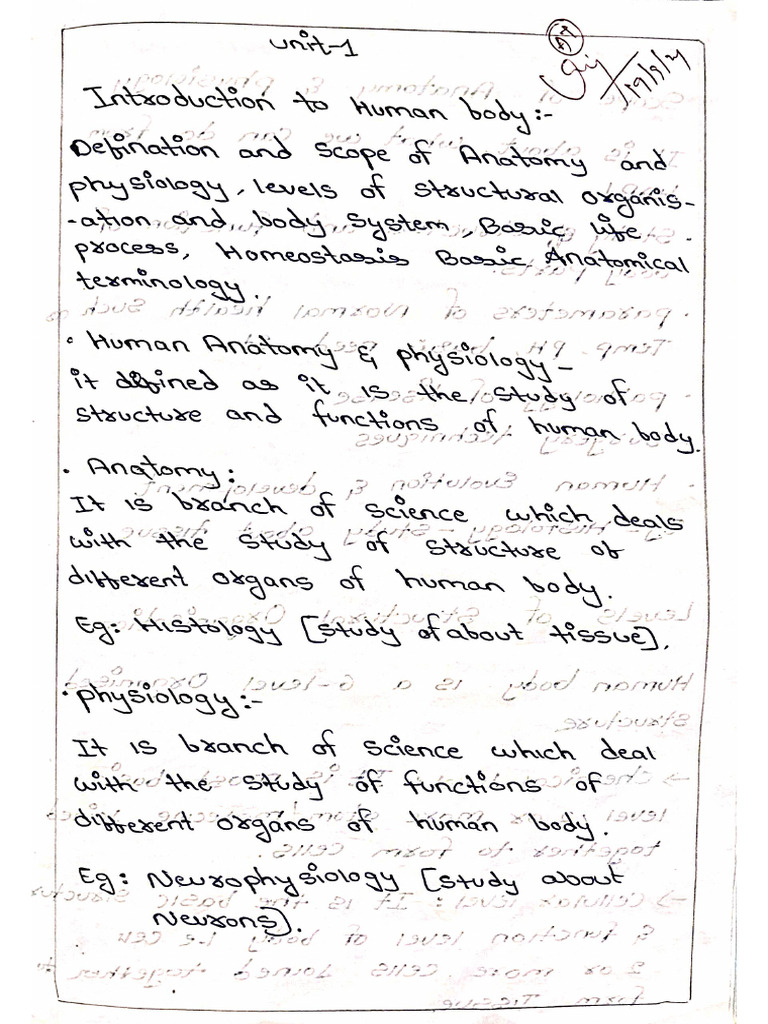 Unit-1
19/9/21
Introduction to Human body :-
Defination and scope of Anatomy and
physiology, levels of structural organis-
-ation and body System, Basic life
process, Homeostasis Basic Anatomical
terminology.
• Human Anatomy & physiology -
it defined as it is the study of
structure and functions of human body.
• Anatomy :
It is branch of science which deals
with the study of structure of
different organs of human body.
Eg: Histology [study of about tissue].
• physiology :-
It is branch of science which deal
with the study of functions of
different organs of human body.
Eg: Neurophysiology [study about
Neurons].